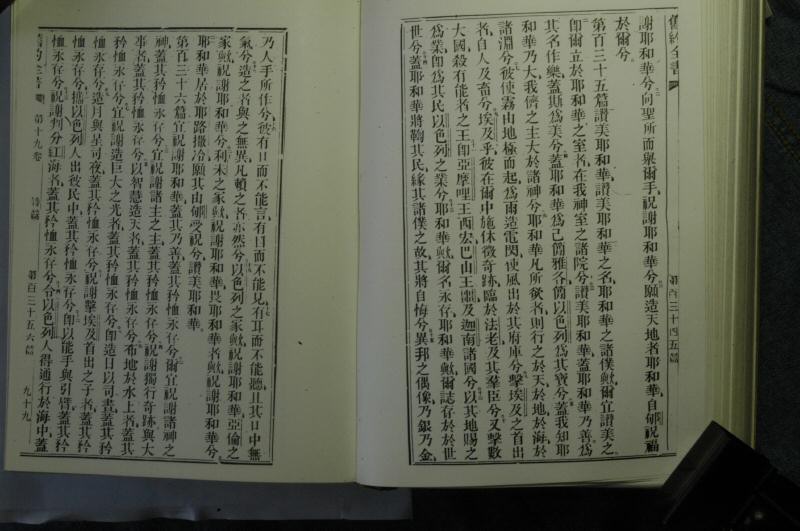 舊約全書
第百三十四五篇
謝耶和華兮向聖所而舉爾手祝謝耶和華兮願造天地者耶和華自郇祝福
於爾兮
第百三十五篇讚美耶和華讚美耶和華之名耶和華之諸僕歟爾宜讚美之
卽爾立於耶和華之室者在我神室之諸院兮讚美耶和華蓋耶和華乃善爲
其名作樂蓋斯爲美兮蓋耶和華爲己簡雅各簡以色列爲其寶兮蓋我知耶
和華乃大我儕之主大於諸神兮耶和華凡所欲者則行之於天於地於海於
諸淵兮彼使霧由地極而起爲雨造電閃使風出於其府庫兮擊埃及之首出
者自人及畜兮埃及乎彼在爾中施休徵奇跡臨於法老及其羣臣兮又擊數
大國殺有能者之王卽亞摩哩王西宏巴山王噩及迦南諸國兮以其地賜之
爲業卽爲其民以色列之業兮耶和華歟爾名永存耶和華歟爾誌存於於世
世兮蓋耶和華將鞫其民緣其諸僕之故其將自悔兮異邦之偶像乃銀乃金
乃人手所作兮彼有口而不能言有目而不能見有耳而不能聽且其口中無
氣兮造之者與之無異凡賴之者亦然兮以色列之家歟祝謝耶和華亞倫之
家歟祝謝耶和華兮利未之家歟祝謝耶和華畏耶和華者歟祝謝耶和華兮
耶和華居於耶路撒冷願其由郇受祝兮讚美耶和華
第百三十六篇宜祝謝耶和華蓋其乃善蓋其矜恤永存兮爾宜祝謝諸神之
神蓋其矜恤永存兮宜祝謝諸主之主蓋其矜恤永存兮祝謝獨行奇跡與大
事者蓋其矜恤永存兮以智慧造天者蓋其矜恤永存兮布地於水上者蓋其
矜恤永存兮宜祝謝造巨大之光者蓋其矜恤永存兮卽造日以司晝蓋其矜
恤永存兮造月與星司夜蓋其矜恤永存兮祝謝擊埃及首出之子者蓋其矜
恤永存兮攜以色列人出彼民中蓋其矜恤永存兮卽以能手與引臂蓋其矜
恤永存兮祝謝判分紅海者蓋其矜恤永存兮令以色列人得通行於海中蓋
舊約全書
第十九卷
詩篇
第百三十五六篇
九十九